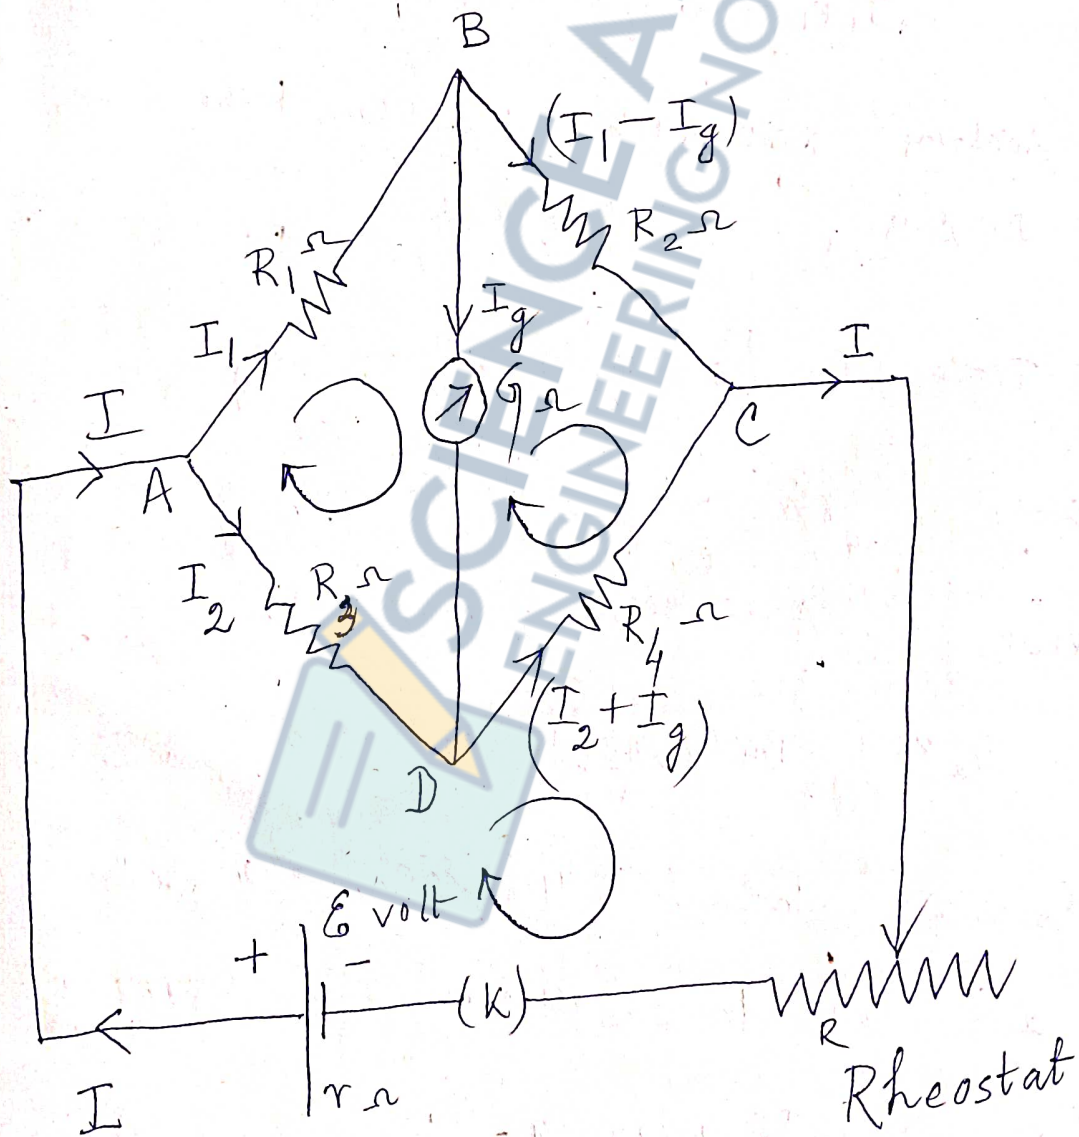 B
(I₁ - I_g)
R₁ Ω
R₂ Ω
I₁
I_g
I
I
G Ω
A
C
I₂
R₃ Ω
R₄ Ω
(I₂ + I_g)
D
ℰ volt
+
-
(K)
R
Rheostat
I
r Ω
SCIENCE A
ENGINEERING NO